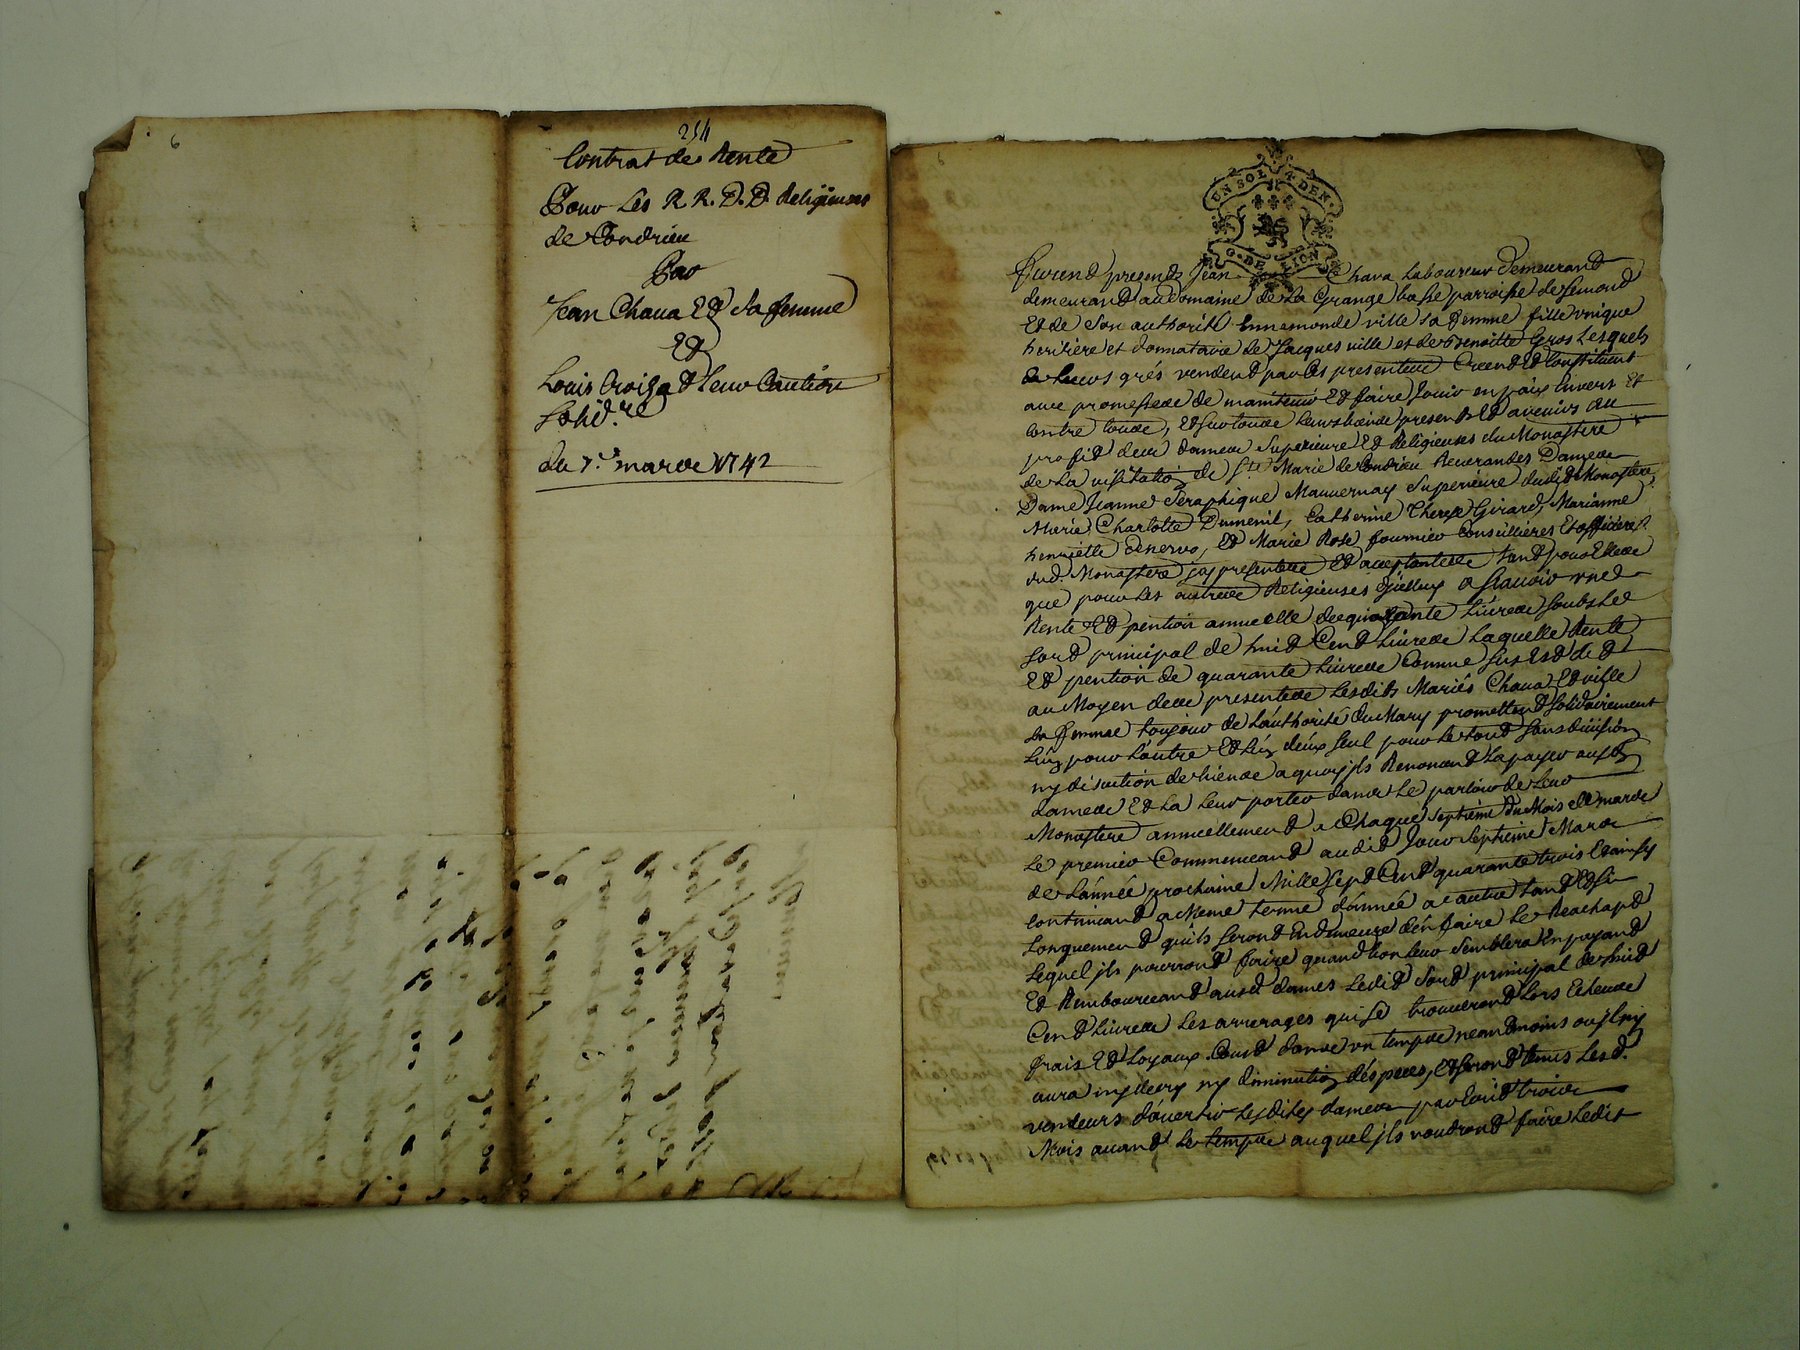 6
254
Contrat de Rente
Pour Les R R. D. D. Religieuses
de Condrieu
Par
Jean Chaua Et sa femme
Et
Louis Croizat Leur Caution
Solid.re
du 7.e mars 1742
6
UN SOL 4 DEN.
G. DE LION
Furent presents Jean Chaua Laboureur demeurant
demeurant au domaine de La Grange basse parroisse de Semond
Et de son authorité Ennemonde ville sa femme fille unique
heritière et donnataire de Jacques ville et de Benoitte Gros Lesquels
de Leurs grés vendent par Ces presentes Créent Et Constituent
avec promesse de maintenir Et faire Jouir en paix Envers Et
contre tous, Et sur tous Leurs biens presents Et avenirs au
profit des dames Superieure Et Religieuses du Monastere
de La visitation de S.te Marie de Condrieu Reverandes Dames
Dame Jeanne Seraphique Mauvernay Superieure dudit Monastere
Marie Charlotte Dumenil, Catherine Therese Girard, Marianne
henriette denervo, Et Marie Rose fournier Conseillieres Et officieres
dud. Monastere icy presentes Et acceptantes tant pour Elles
que pour Les autres Religieuses d'icelluy a scauoir une
Rente Et pention annuelle de quarante Liures soubs Le
sort principal de huit Cent Liures Laquelle Rente
Et pention de quarante Liures Comme sus Est dit
au Moyen des presentes Lesdits Mariés Chaua Et ville
sa femme toujour de L'authorité du Mary promettent solidairement
L'un pour L'autre Et L'un d'eux seul pour Le tout sans division
ny discution de biens a quoy ils Renoncent La payer auxd.
dames Et La Leur porter dans Le parloir de Leur
Monastere annuellement a Chaque septieme du Mois de mars
Le premier Commenceant audit Jour septieme Mars
de L'année prochaine Mille sept Cent quarante trois Et ainsy
continuant a Meme terme d'année a autre tant Et si
Longuement qu'ils seront En demeure d'en faire Le Reachapt
Lequel ils pourront faire quand bon Leur semblera En payant
Et Remboursant auxd dames Ledit sort principal de huit
Cent Liures Les arrerages qui se trouveront Lors Echeus
frais Et Loyaux Cout dans un temps neantmoins ou il ny
aura ny decry ny diminution d'especes, Et seront tenus Lesd.
vendeurs d'avertir Lesdites dames par Ecrit trois
Mois avant Le temps auquel ils voudront faire Ledit